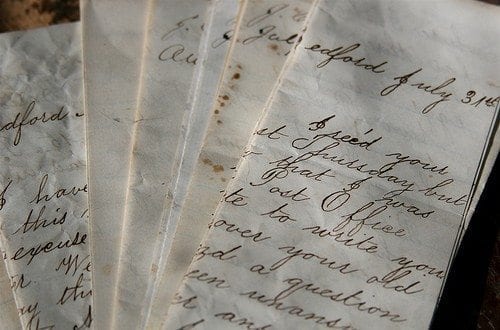 dford
I have
this
excuse
We
Au
J. Jul
edford July 31st
I rec'd your
st Thursday but
that I was
Post Office
te to write you
over your old
a question
een unans
ans